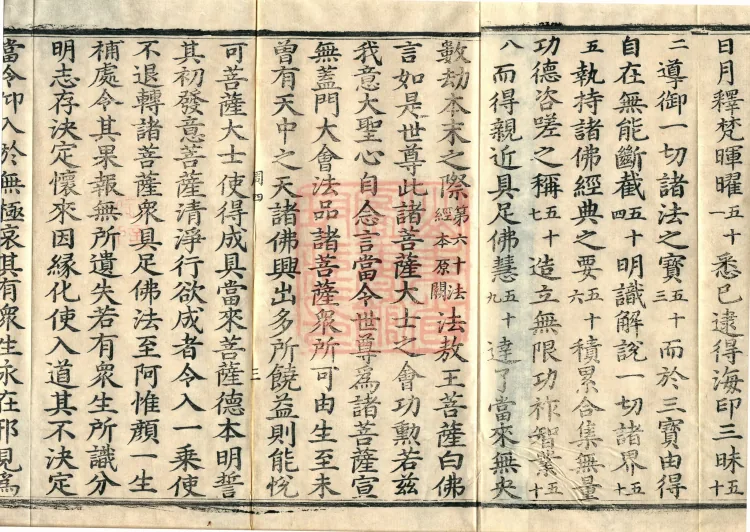 日月釋梵暉曜五十一悉已逮得海印三昧五十
二導御一切諸法之寶五十三而於三寶由得
自在無能斷截五十四明識解說一切諸界五十
五執持諸佛經典之要五十六積累合集無量
功德咨嗟之稱五十七造立無限功祚智業五十
八而得親近具足佛慧五十九達了當來無央
數劫本末之際第六十法經本原闕法敖王菩薩白佛
言如是世尊此諸菩薩大士之會功勳若兹
我意大聖心自念言當令世尊爲諸菩薩宣
無蓋門大會法品諸菩薩衆所可由生至未
曾有天中之天諸佛興出多所饒益則能悅
周四 三
可菩薩大士使得成具當來菩薩德本明誓
其初發意菩薩清淨行欲成者令入一乘使
不退轉諸菩薩衆具足佛法至阿惟顏一生
補處令其果報無所遺失若有衆生所識分
明志存決定懷來因緣化使入道其不決定
當令仰入於無極哀其有衆生永在邪見爲